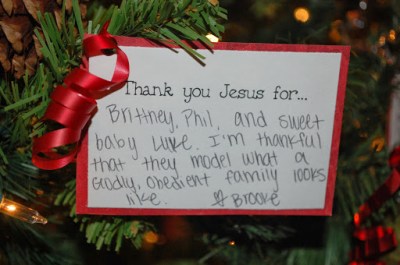 Thank you Jesus for...
Brittney, Phil, and sweet
baby Luke. I'm thankful
that they model what a
Godly, obedient family looks
like. ☆ Brooke